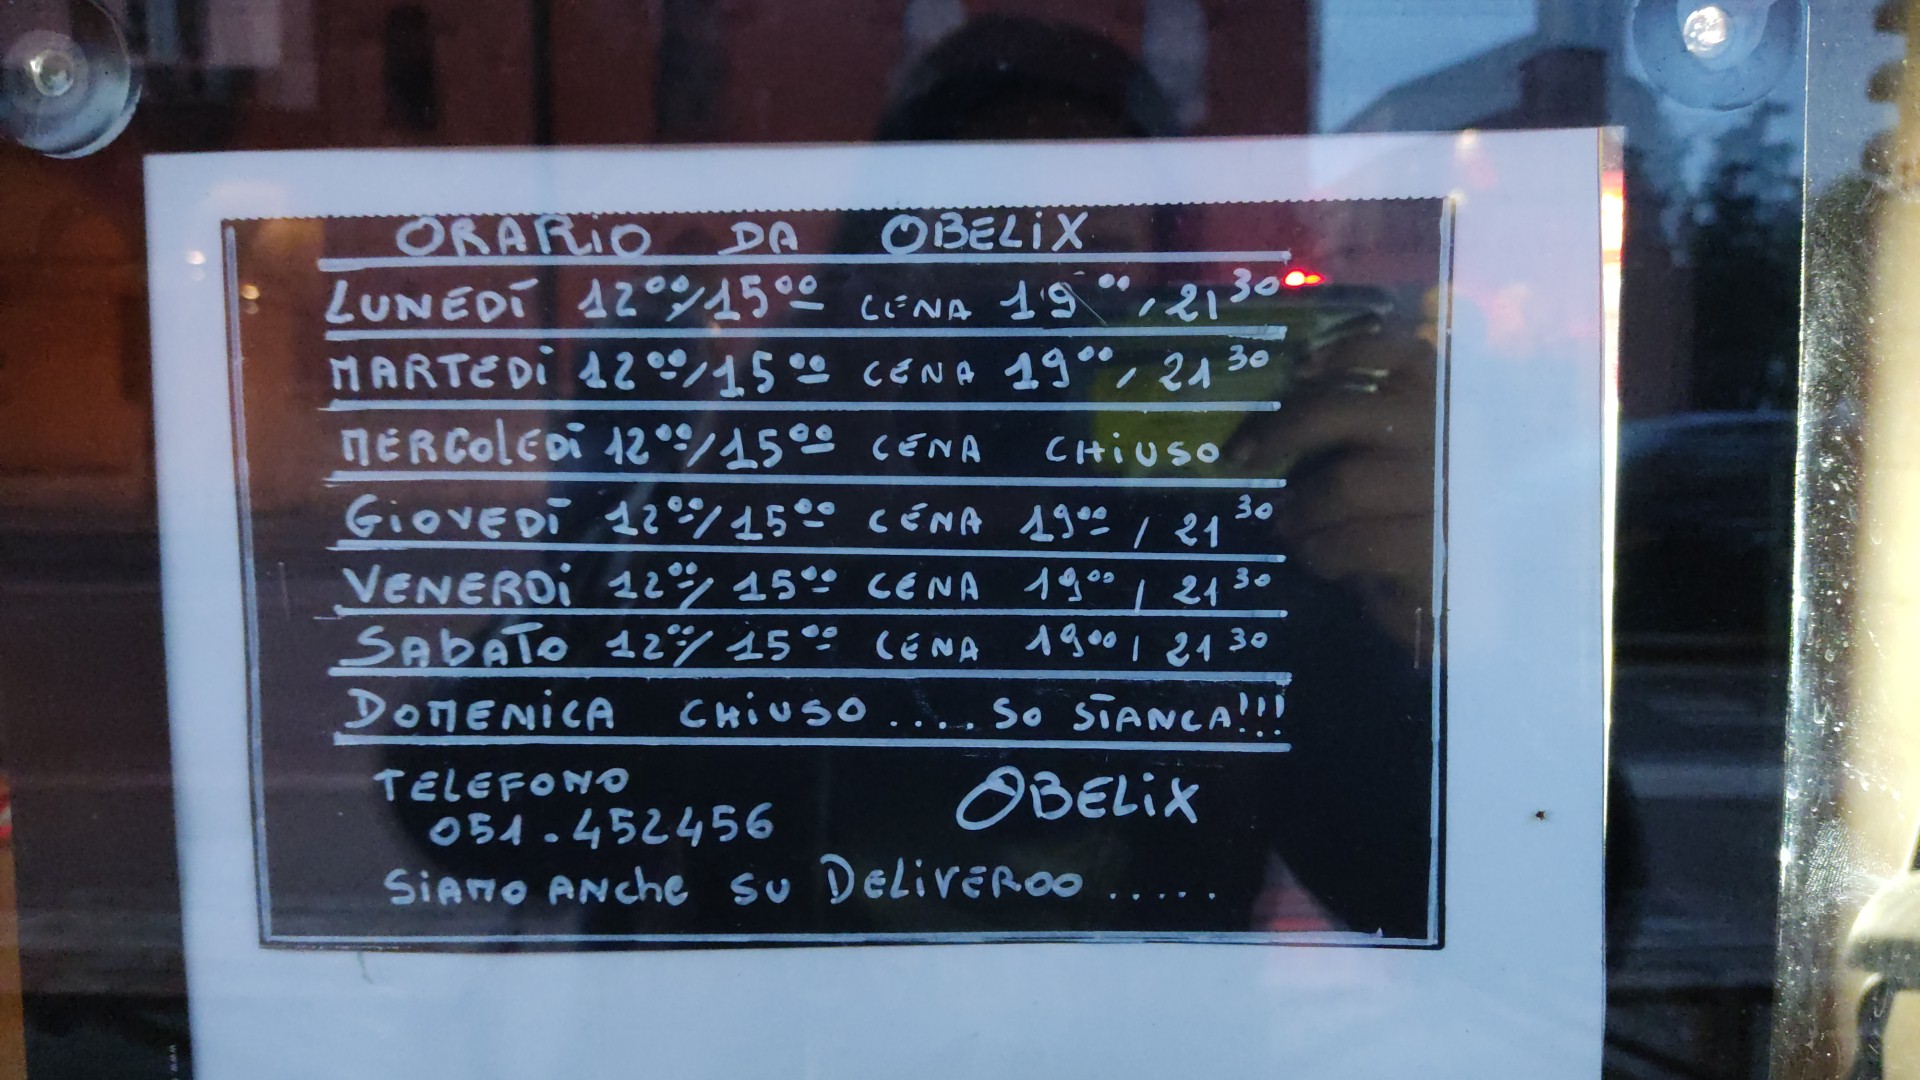 ORARIO DA OBELIX
LUNEDÌ 12⁰⁰/15⁰⁰ CENA 19⁰⁰/21³⁰
MARTEDÌ 12⁰⁰/15⁰⁰ CENA 19⁰⁰/21³⁰
MERCOLEDÌ 12⁰⁰/15⁰⁰ CENA CHIUSO
GIOVEDÌ 12⁰⁰/15⁰⁰ CENA 19⁰⁰/21³⁰
VENERDì 12⁰⁰/15⁰⁰ CENA 19⁰⁰/21³⁰
SABATO 12⁰⁰/15⁰⁰ CENA 19⁰⁰/21³⁰
DOMENICA CHIUSO.... SO STANCA!!!
TELEFONO OBELIX
051.452456
SIAMO ANCHE SU DELIVEROO.....